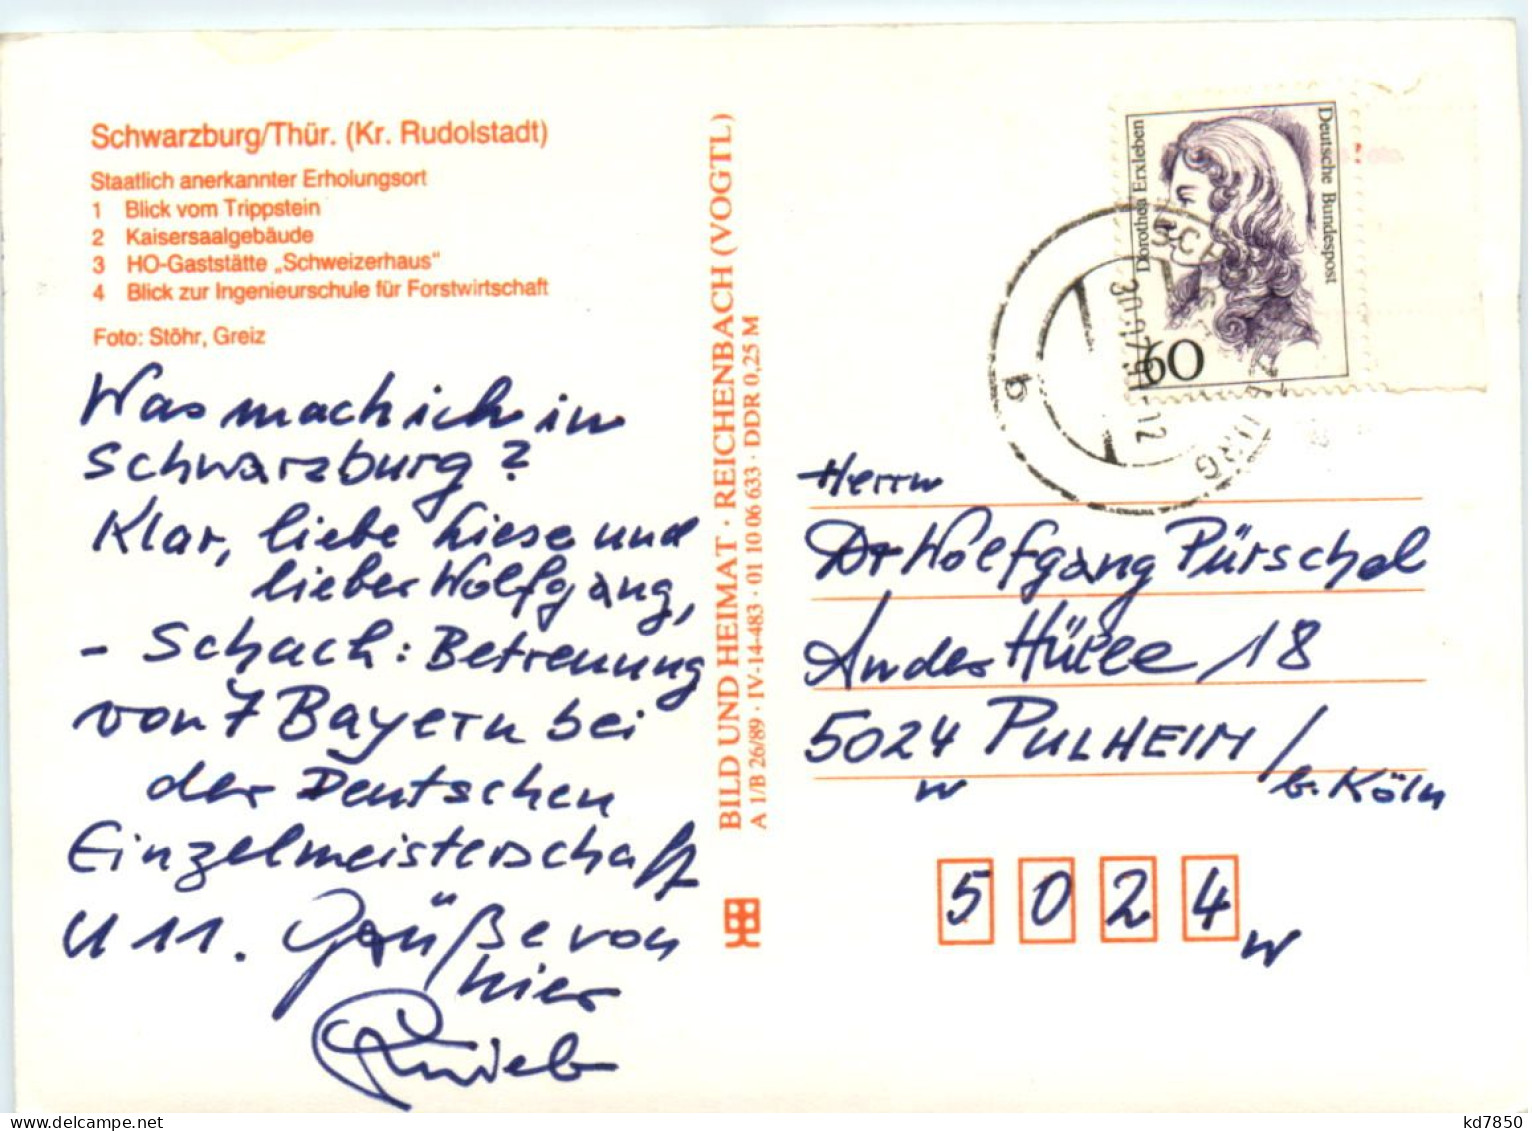 Schwarzburg/Thür. (Kr. Rudolstadt)
Staatlich anerkannter Erholungsort
1 Blick vom Trippstein
2 Kaisersaalgebäude
3 HO-Gaststätte „Schweizerhaus“
4 Blick zur Ingenieurschule für Forstwirtschaft
Foto: Stöhr, Greiz
Was mach ich in
Schwarzburg?
Klar, liebe Liese und
lieber Wolfgang,
- Schach: Betreuung
von 7 Bayern bei
der Deutschen
Einzelmeisterschaft
U 11. Grüße von
hier
BILD UND HEIMAT · REICHENBACH (VOGTL)
A 1/B 26/89 · IV-14-483 · 01 10 06 633 · DDR 0,25 M
Deutsche Bundespost
Dorothea Erxleben
60
b
Herrn
Dr Wolfgang Pürschel
An der Hülle 18
5024 PULHEIM /
W b. Köln
5 0 2 4
W
kd7850